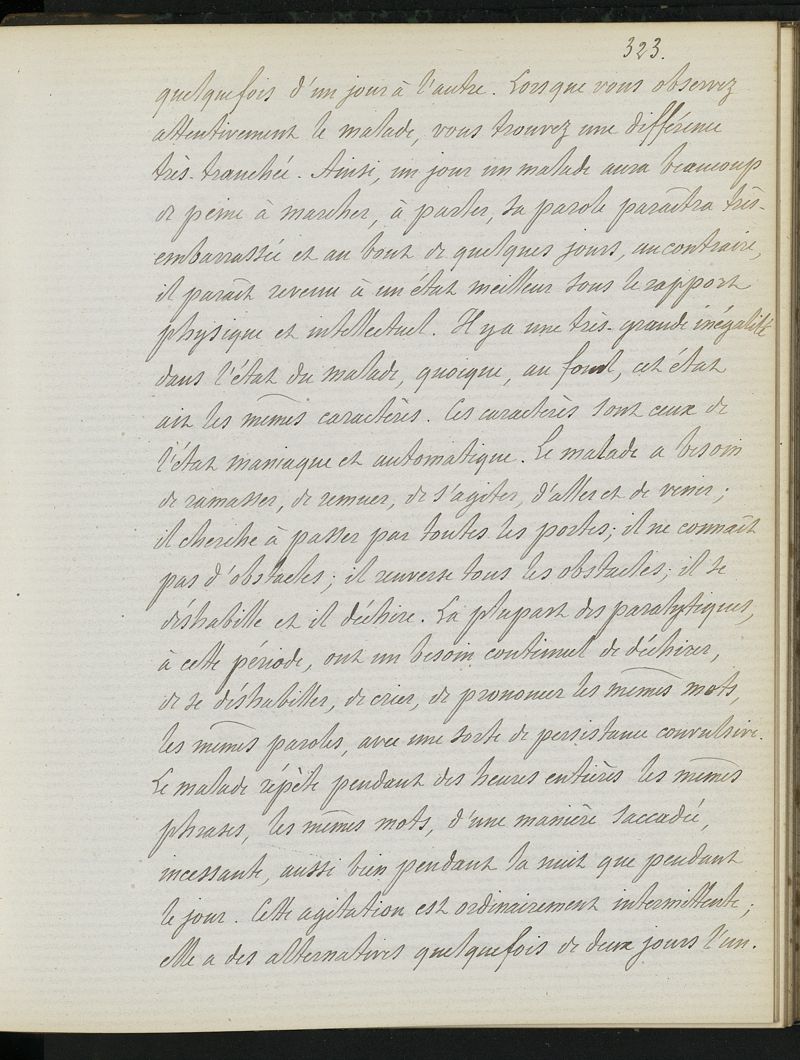 323.
quelquefois d'un jour à l'autre. Lorsque vous observez
attentivement le malade, vous trouvez une différence
très-tranchée. Ainsi, un jour un malade aura beaucoup
de peine à marcher, à parler, sa parole paraîtra très-
embarrassée et au bout de quelques jours, au contraire,
il paraît revenu à un état meilleur sous le rapport
physique et intellectuel. Il y a une très-grande inégalité
dans l'état du malade, quoique, au fond, cet état
ait les mêmes caractères. Ces caractères sont ceux de
l'état maniaque et automatique. Le malade a besoin
de ramasser, de remuer, de s'agiter, d'aller et de venir ;
il cherche à passer par toutes les portes ; il ne connaît
pas d'obstacles ; il renverse tous les obstacles ; il se
déshabille et il déchire. La plupart des paralytiques,
à cette période, ont un besoin continuel de déchirer,
de se déshabiller, de crier, de prononcer les mêmes mots,
les mêmes paroles, avec une sorte de persistance convulsive.
Le malade répète pendant des heures entières les mêmes
phrases, les mêmes mots, d'une manière saccadée,
incessante, aussi bien pendant la nuit que pendant
le jour. Cette agitation est ordinairement intermittente ;
elle a des alternatives quelquefois de deux jours l'un.